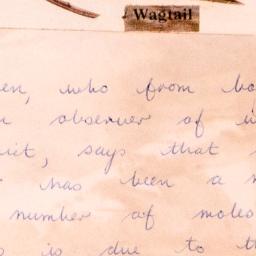 Wagtail
en, who from bo
observer of
iet, says that
has been a
number of moles
is due to th